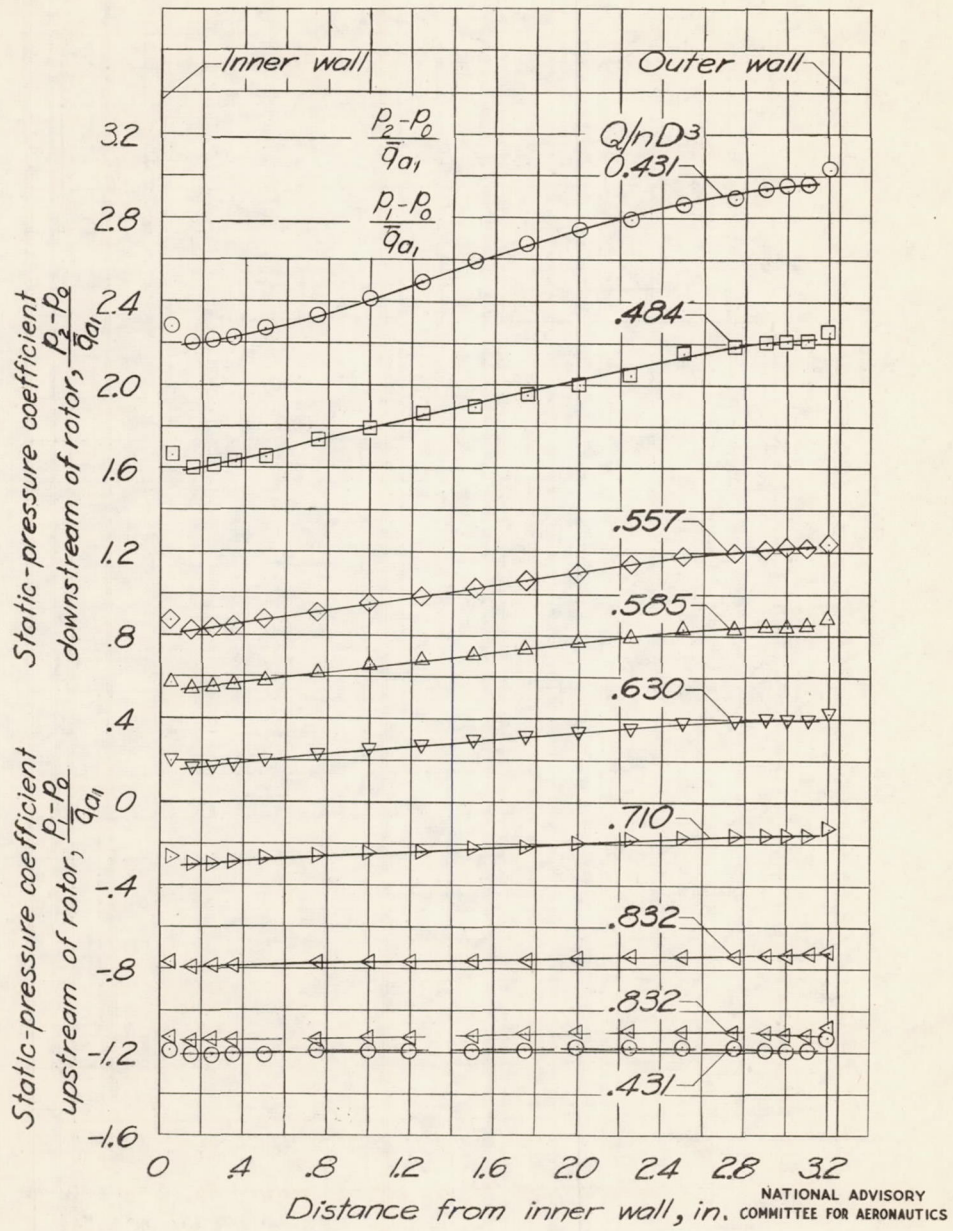 Inner wall
Outer wall
p₂-p₀
q̄a₁
p₁-p₀
q̄a₁
Q/nD³
0.431
.484
.557
.585
.630
.710
.832
.832
.431
3.2
2.8
2.4
2.0
1.6
1.2
.8
.4
0
-.4
-.8
-1.2
-1.6
Static-pressure coefficient
downstream of rotor, p₂-p₀
q̄a₁
Static-pressure coefficient
upstream of rotor, p₁-p₀
q̄a₁
0 .4 .8 1.2 1.6 2.0 2.4 2.8 3.2
Distance from inner wall, in.
NATIONAL ADVISORY
COMMITTEE FOR AERONAUTICS